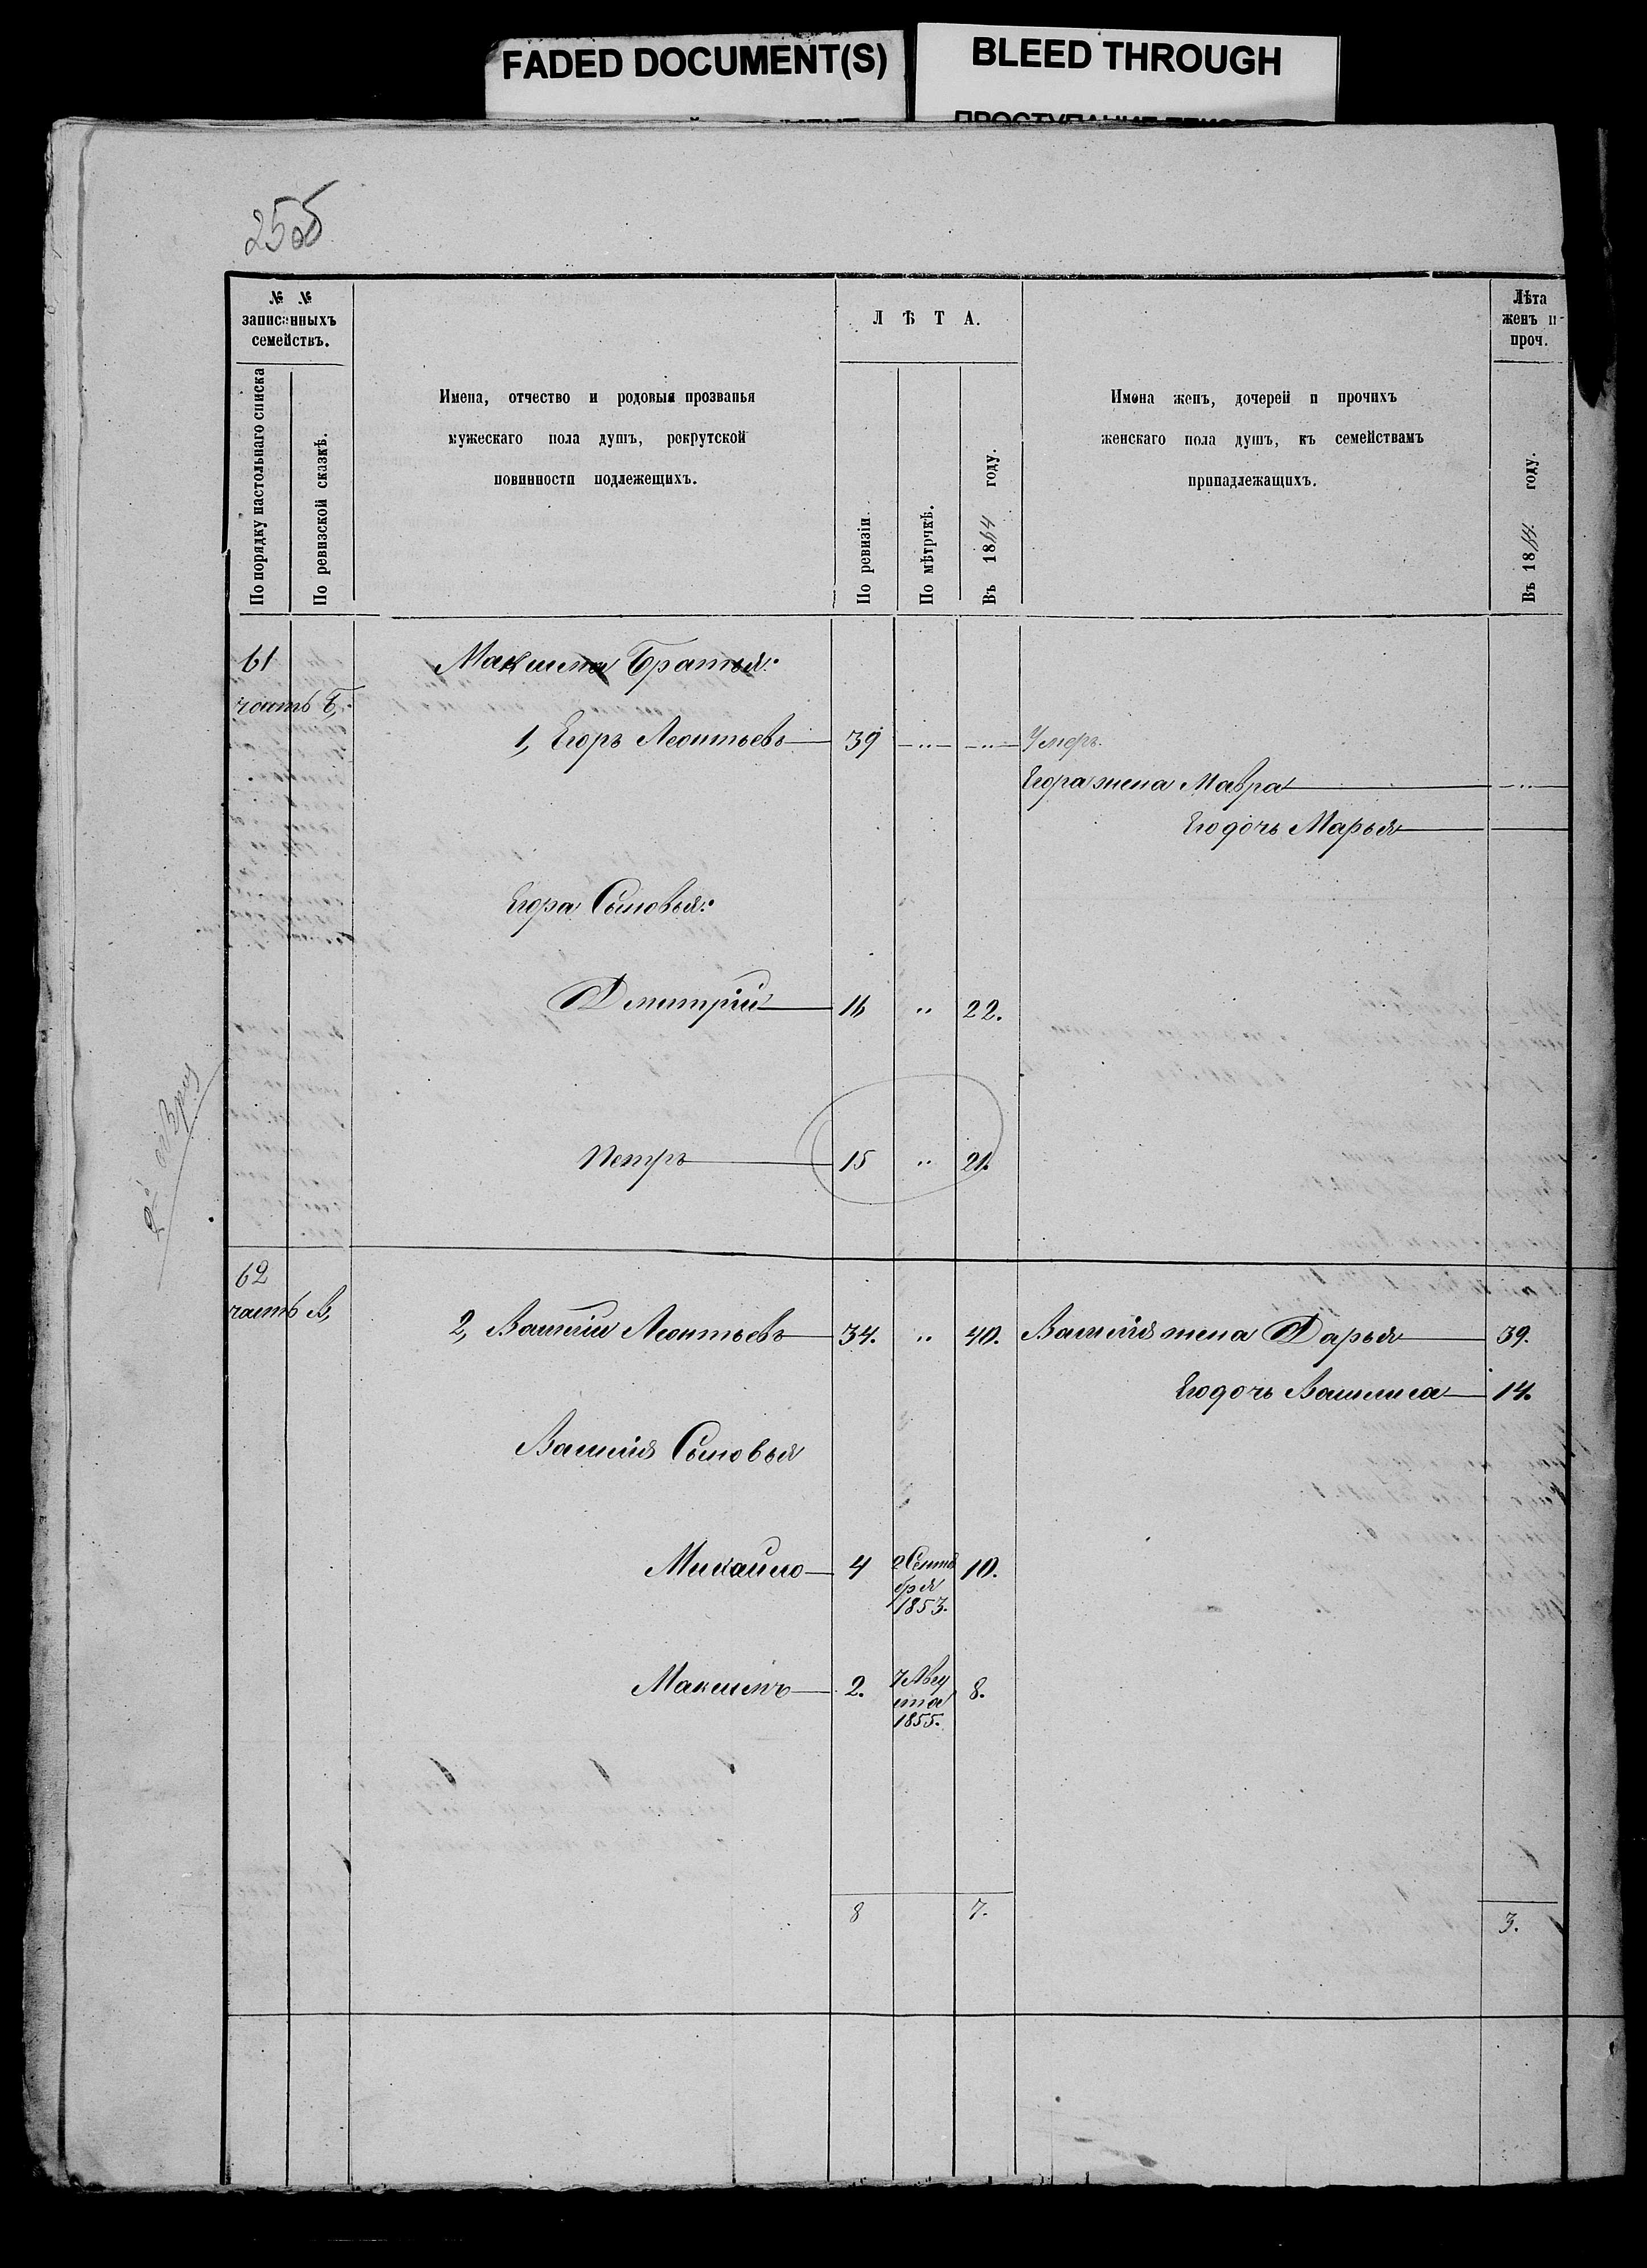 FADED DOCUMENT(S)
BLEED THROUGH
№ №
записанныхъ
семействъ.
По порядку настольнаго списка
По ревизской сказкѣ.
Имена, отчество и родовыя прозванья
мужескаго пола душъ, рекрутской
повинности подлежещихъ.
ЛѢТА.
По ревизіи
По мѣтрчкѣ.
Въ 1864 году.
Имена женъ, дочерей и прочихъ
женскаго пола душъ, къ семействамъ
принадлежащихъ.
Лѣта
женъ и
проч.
Въ 1864 году.
61 Максима Братья:
часть Б,
1, Егоръ Леонтьевъ 39 „ „ Умеръ.
Егора жена Мавра „
Его дочь Марья
Егора Сыновья:
Дмитрій 16 „ 22.
Петръ 15 „ 21.
62
часть В,
2, Василій Леонтьевъ 34. „ 40. Василія жена Дарья 39.
Его дочь Василиса 14.
Василія Сыновья
Михайло 4 2 Сентя
бря
1853. 10.
Максимъ 2. 7 Авгу
ста
1855. 8.
8 7. 3.